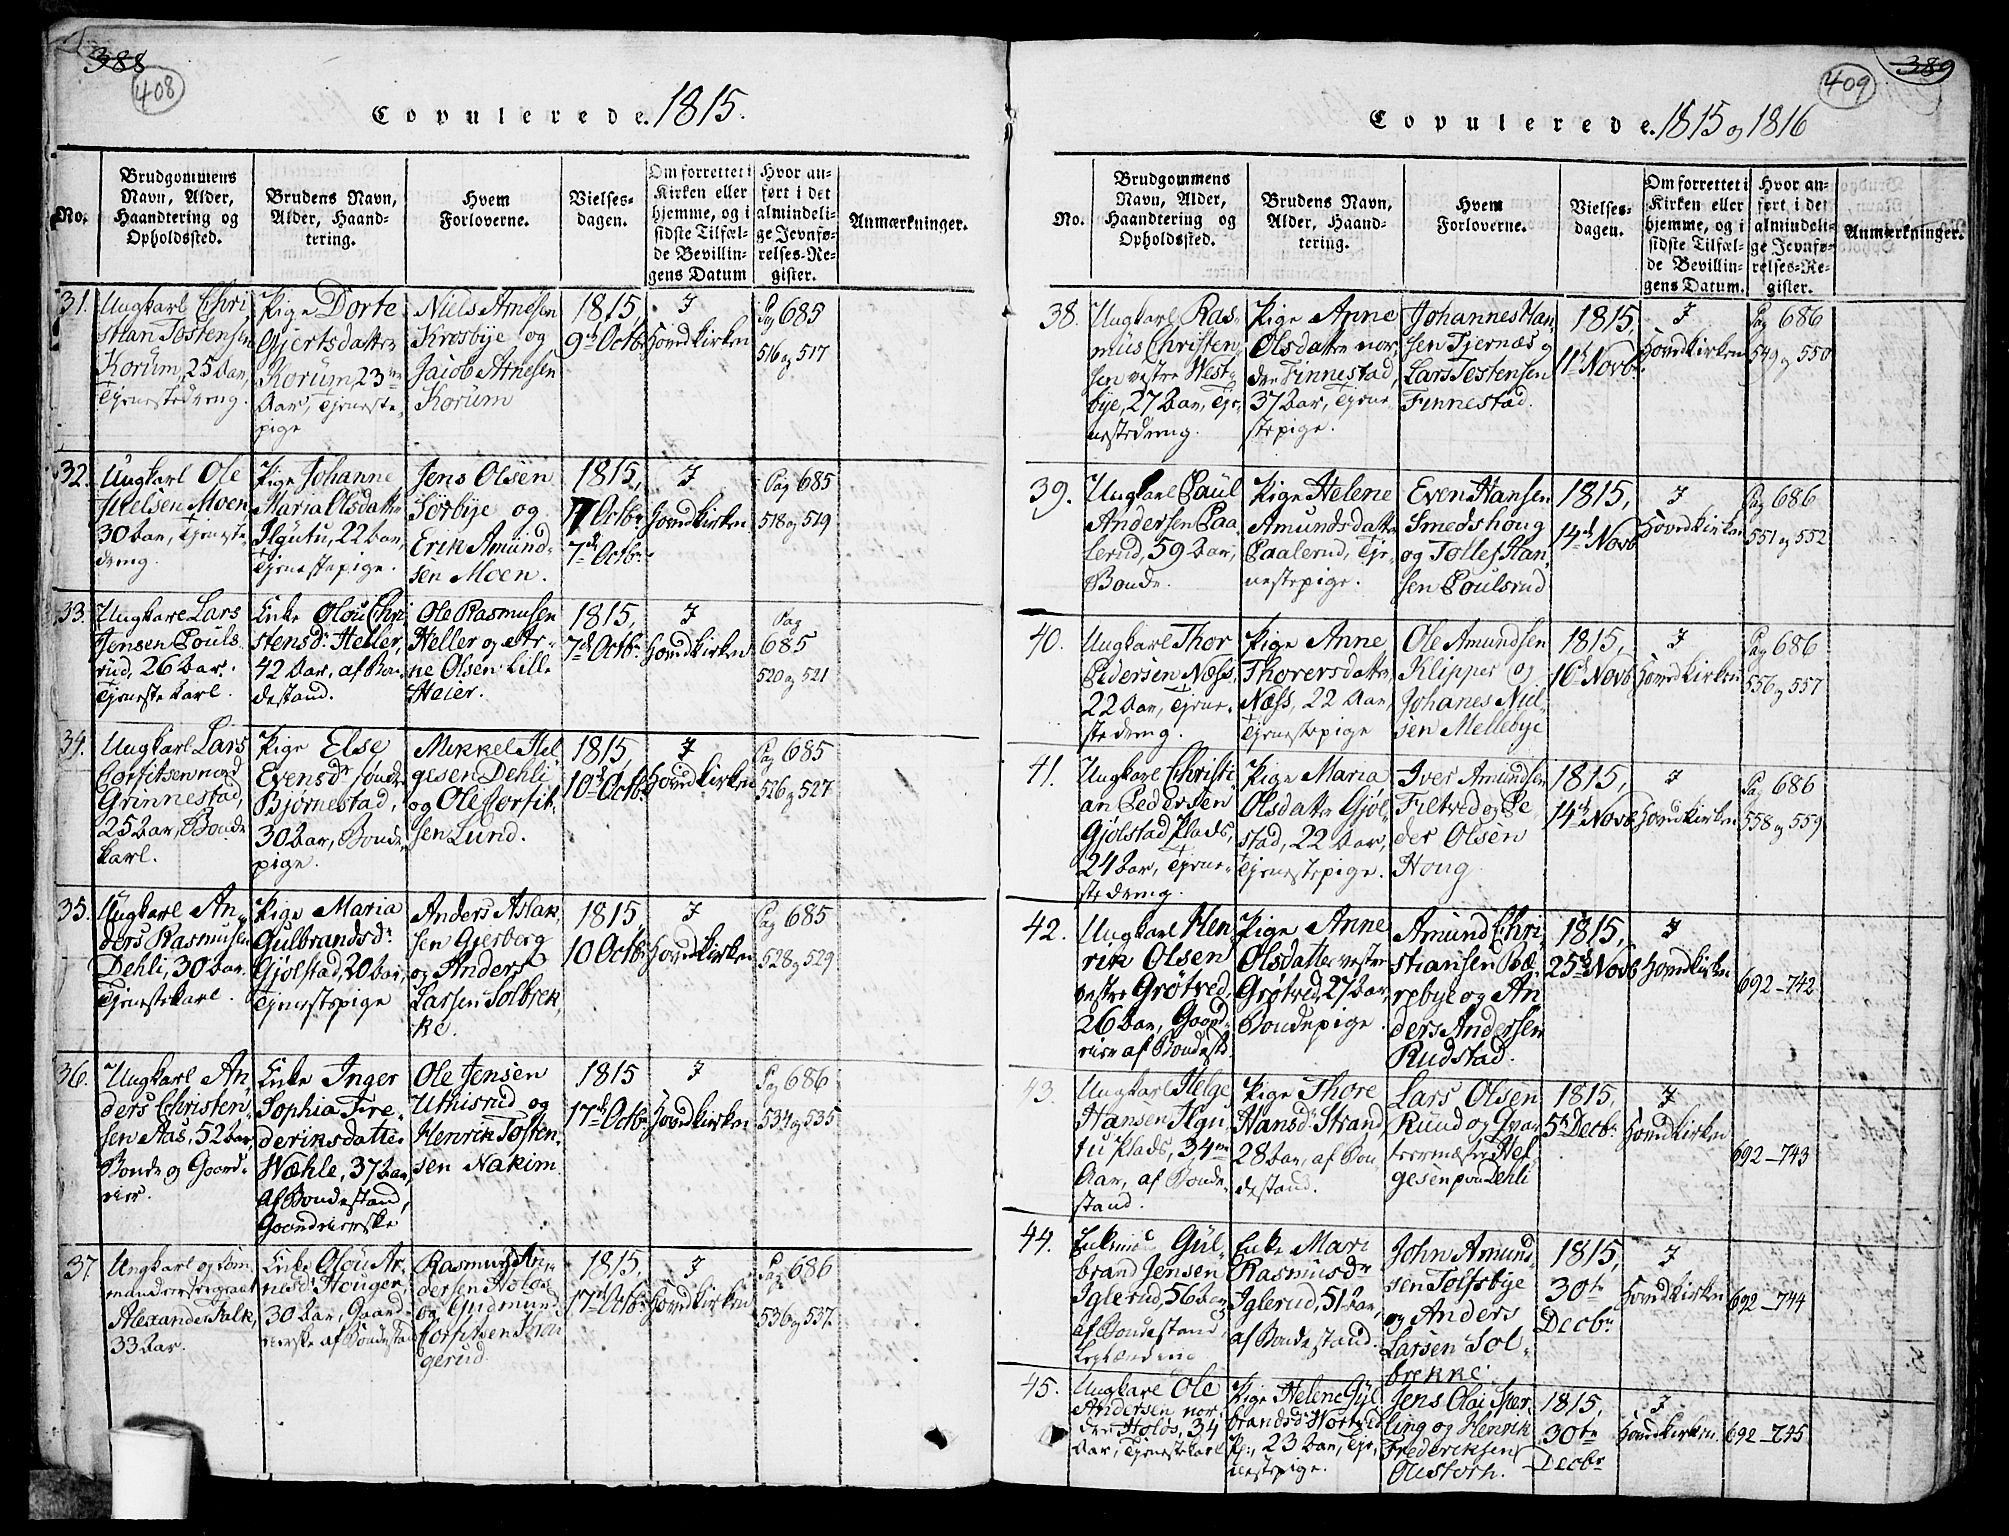 388
408
Copulerede. 1815.
No.
Brudgommens
Navn, Alder,
Haandtering og
Opholdssted.
Brudens Navn,
Alder, Haand-
tering.
Hvem
Forloverne.
Vielses-
dagen.
Om forrettet i
Kirken eller
hjemme, og i
sidste Tilfæl-
de Bevillin-
gens Datum
Hvor an-
ført i det
almindeli-
ge Jevnfø-
relses-Re-
gister.
Anmærkninger.
31.
Ungkarl Chri
stian Tostensen
Korum, 25 Aar,
Tjenestedreng.
Pige Dorte
Gjertsdatter
Korum, 23
Aar, Tjeneste-
pige
Niels Arnesen
Krosbye og
Jacob Arnesen
Korum
1815,
9de Octbr
I
Hovedkirken
Pag 685
516 og 517
32.
Ungkarl Ole
Nielsen Moen
30 Aar, Tjeneste-
dreng.
Pige Johanne
Maria Olsdatter
Ilgutu, 22 Aar,
Tjenestepige.
Jens Olsen
Sörbye og
Erik Amund-
sen Moen.
1815,
7 Octbr
7de Octbr.
I
Hovedkirken
Pag 685
518 og 519
33.
Ungkarl Lars
Jensen Pouls
rud, 26 Aar.
Tjenestekarl.
Enke Olou Chri
stensdr Heller,
42 Aar, af Bon-
destand.
Ole Rasmusen
Heller og Ar-
ne Olsen Lille
Heier.
1815,
7de Octbr
I
Hovedkirken
Pag
685
520 og 521
34.
Ungkarl Lars
Corfitsen nord
Grinnestad,
25 Aar, Bonde
karl.
Pige Else
Evensdr søndr
Bjørnestad,
30 Aar, Bonde-
pige.
Mikkel Hel
gesen Dehli
og Ole Corfit-
sen Lund.
1815,
10de Octbr
I
Hovedkirken
Pag 685
526 og 527
35.
Ungkarl An-
ders Rasmusen
Dehli, 30 Aar.
Tjenestekarl.
Pige Maria
Gulbrandsdr
Gjølstad, 20 Aar,
Tjenestepige
Anders Aslak-
sen Gjerberg
og Anders
Larsen Solbrek
ke.
1815,
10 Octbr
I
Hovedkirken
Pag 685
528 og 529
36.
Ungkarl An
ders Christen-
sen Aas, 52 Aar
Bonde og Gaard-
Enke Inger
Sophia Fre-
deriksdatter
Wæhle, 37 Aar,
af Bondestand,
Ole Jensen
Uthisrud og
Henrik Tosten-
sen Nakim
1815
17de Octbr
I
Hovedkirken
Pag 686
534 og 535
37
Ungkarl og
Alexander Falk,
33 Aar.
Enke Olou Ar
30 Aar, Gaard-
af Bondestand
Rasmus An-
dersen Holøs
og Gudmund
Corfitsen
gerud.
1815,
17de Octbr
I
Hovedkirken
Pag 686
536 og 537.
389
409
Copulerede. 1815 og 1816
No.
Brudgommens
Navn, Alder,
Haandtering og
Opholdssted.
Brudens Navn,
Alder, Haand-
tering.
Hvem
Forloverne.
Vielses-
dagen.
Om forrettet i
Kirken eller
hjemme, og i
sidste Tilfæl-
de Bevillin-
gens Datum.
Hvor an-
ført i det
almindeli-
ge Jevnfø-
relses-Re-
gister.
Anmærkninger.
38.
Ungkarl Ras-
mus Christen-
sen vestre West-
bye, 27 Aar, Tje-
nestedreng.
Pige Anne
Olsdatter nor-
dre Finnestad,
37 Aar, Tjene-
stepige.
Johannes Han-
sen Tjernæs og
Lars Tostensen
Finnestad.
1815,
11de Novb.
I
Hovedkirken
Pag 686
549 og 550
39.
Ungkarl Paul
Andersen Paa-
lerud, 59 Aar,
Bonde.
Pige Helene
Amundsdatter
Paalerud, Tje-
nestepige.
Even Hansen
Smedshoug
og Tollef Han-
sen Poulsrud
1815,
14de Novb
I
Hovedkirken
Pag 686
551 og 552
40.
Ungkarl Thor
Pedersen Næss
22 Aar, Tjene-
stedreng.
Pige Anne
Thorersdatter
Næss, 22 Aar,
Tjenestepige
Ole Amundsen
Klipper og
Johanes Niel-
sen Mellebye
1815,
10de Novb
I
Hovedkirken
Pag 686
556 og 557
41.
Ungkarl Christi-
an Pedersen
Gjølstad Plads,
24 Aar, Tjene-
stedreng.
Pige Maria
Olsdatter Gjøl-
stad, 22 Aar,
Tjenestepige.
Iver Amundsen
Filtved og Pe-
der Olsen
Houg
1815,
14de Novb
I
Hovedkirken
Pag 686
558 og 559
42.
Ungkarl Hen-
rik Olsen
vestre Grøtved,
26 Aar, Gaard-
af Bondest.
Pige Anne
Olsdatter vestre
Grøtved, 27 Aar,
Bondepige.
Amund Chri-
stiansen Bæ-
rebye og An-
ders Andersen
Rudstad.
1815,
25de Novb
I
Hovedkirken
692-742
43.
Ungkarl Helge
Hansen Ilgu-
tu Plads, 34
Aar, af Bonde-
stand.
Pige Thore
Hansdr Strand,
28 Aar, af Bon-
destand.
Lars Olsen
Ruud og Qvar-
teermæster Hel-
gesen paa Dehli
1815,
5te Decbr
I
Hovedkirken
692-743
44.
Enkemd Gul-
brand Jensen
Iglerud, 56 Aar
af Bondestand,
Enke Mari
Rasmusdr
Iglerud, 51 Aar,
af Bondestand.
John Amund-
sen Tolfsbye
og Anders
Larsen Sol-
brekke.
1815,
30te
Decbr
I
Hovedkirken
692-744
45.
Ungkarl Ole
Andersen nor-
dre Holøs, 34
Aar, Tjenestekarl
Pige Helene Gul
brandsdr
23 Aar, Tje-
nestepige.
Jens Olai Sper-
ling og Henrik
Frederiksen
1815,
30te
Decbr
I
Hovedkirken.
692-745